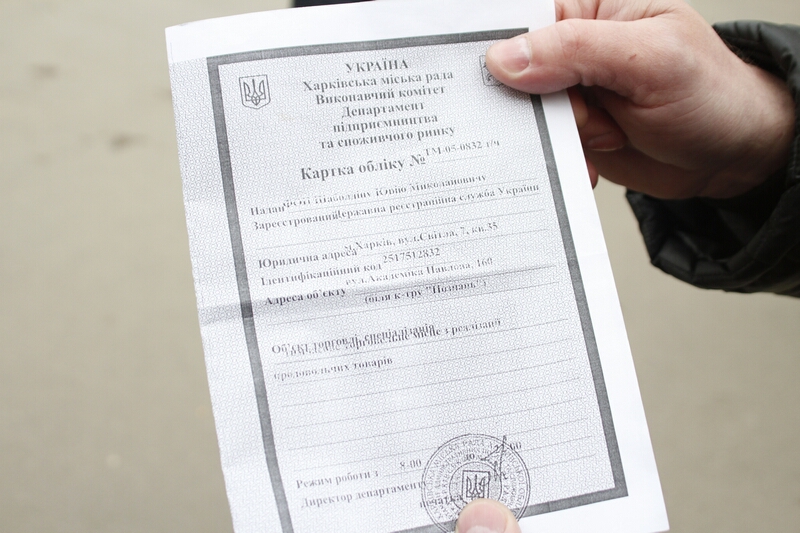 УКРАЇНА
Харківська міська рада
Виконавчий комітет
Департамент
підприємництва
та споживчого ринку
Картка обліку № ТМ-05-0832 т/ч
Надана ФОП Юрію Миколайовичу
Зареєстрований Державна реєстраційна служба України
Юридична адреса м.Харків, вул.Світла, 7, кв.35
Ідентифікаційний код 2517512832
Адреса об'єкту вул.Академіка Павлова, 160
(біля к-тру "Познань")
Об'єкт торгівлі, спеціалізація
торговельне місце з реалізації
продовольчих товарів
Режим роботи з 8-00 до
Директор департаменту